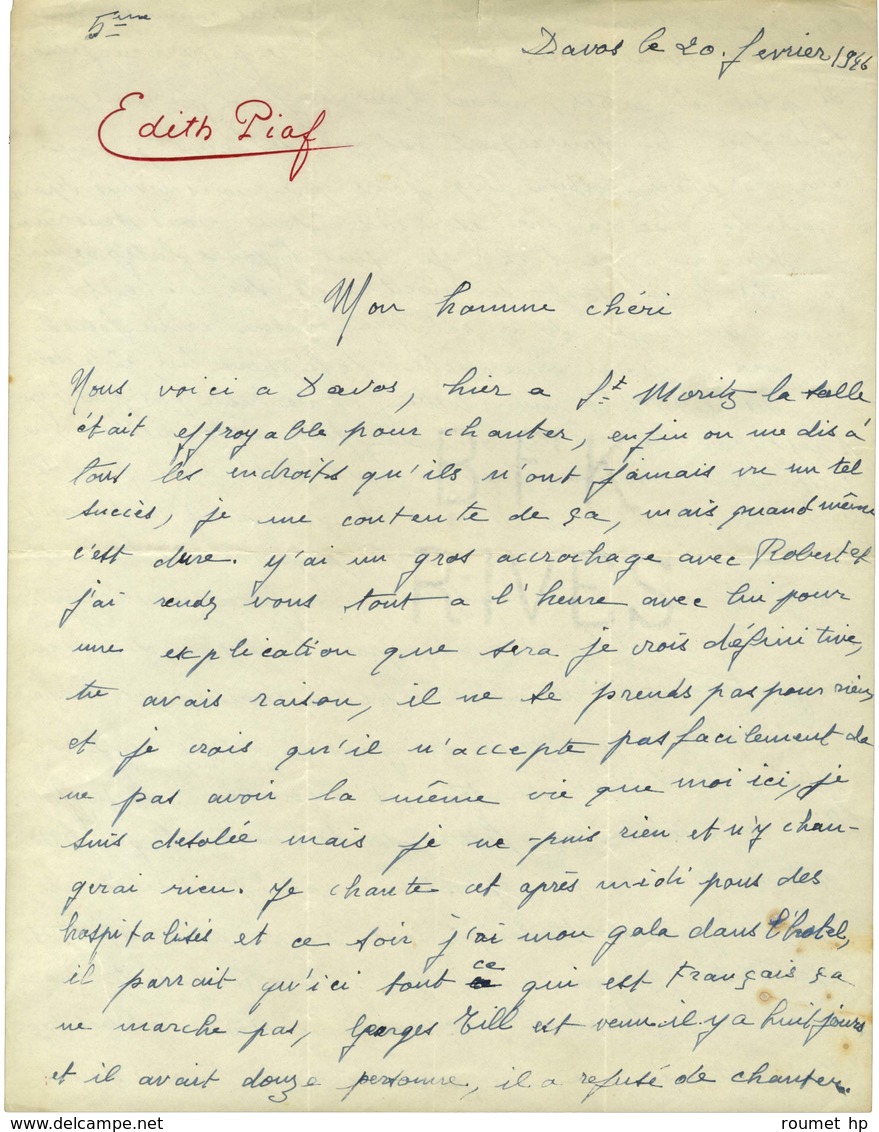 5ème
Davos le 20. fevrier 1946
Edith Piaf
Mon homme chéri
Nous voici a Davos, hier a St Moritz la salle
était effroyable pour chanter, enfin on me dis à
tous les endroits qu'ils n'ont jamais vu un tel
succès, je me contente de ça, mais quand même
c'est dure. y'ai un gros accrochage avec Robert et
j'ai rendez vous tout a l'heure avec lui pour
une explication que sera je crois définitive,
tu avais raison, il ne se prends pas pour rien
et je crois qu'il n'accepte pas facilement de
ne pas avoir la même vie que moi ici, je
suis desolée mais je ne puis rien et n'y chan-
gerai rien. Je chante cet après midi pous des
hospitalisés et ce soir j'ai mon gala dans l'hotel,
il parrait qu'ici tout ce qui est Français ça
ne marche pas, Georges Till est venu il y a huit jours
et il avait douze personne, il a refusé de chanter.
roumet hp